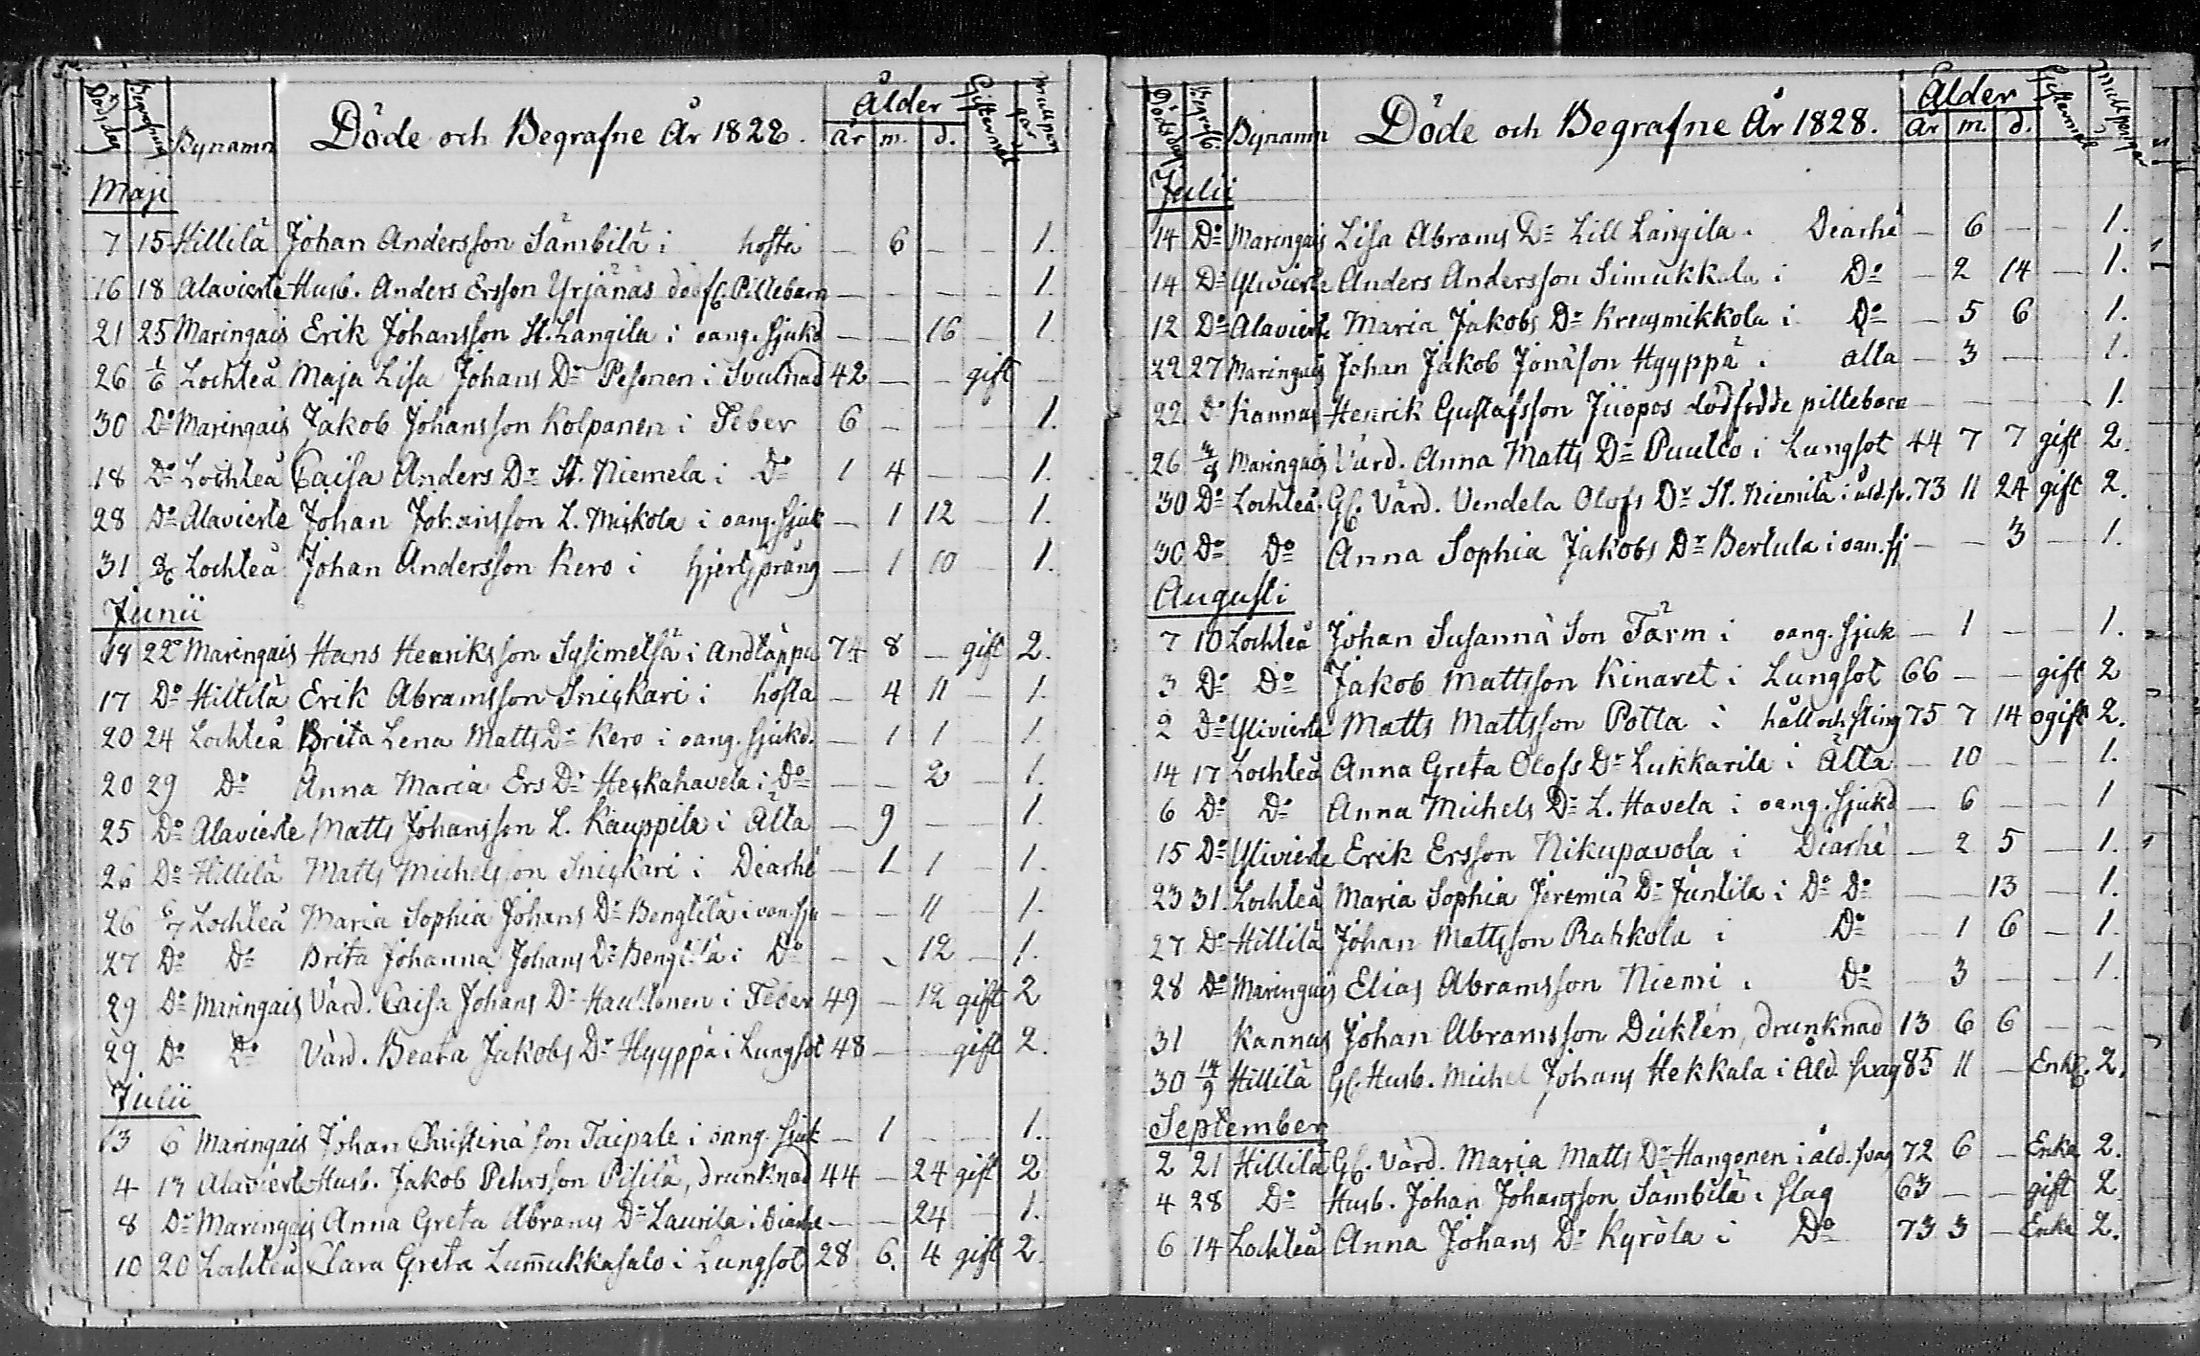 Dödsdag Begrafning Bynamn Döde och Begrafne År 1828. Ålder år m. d. Giftermål
Maji
7 15 Hillilä Johan Andersson Sämbilä i hosta — 6 — — 1.
16 18 Alavierte Husb. Anders Ersson Yrjänäs dödf. Piltebarn — — — — 1.
21 25 Maringais Erik Johansson St. Langila i oang. sjukd — — 16 — 1.
26 1/6 Lochteå Maja Lisa Johans Dr Pesonen i Svullnad 42 — — gift —
30 Do Maringais Jakob Johansson Kolpanen i Feber 6 — — — 1.
18 Do Lochteå Caisa Anders Dr St. Niemela i Do 1 4 — — 1.
28 Do Alavierte Johan Johansson L. Miskola i oang. sjuk — 1 12 — 1.
31 8/6 Lochteå Johan Andersson Kero i hjertspräng — 1 10 1.
Junii
18 22 Maringais Hans Henriksson Sysimetsä i Andtäppa 74 8 — gift 2.
17 Do Hillilä Erik Abramsson Sniskari i hosta — 4 11 — 1.
20 24 Lochteå Brita Lena Matts Dr Kero i oang. sjukd. — 1 1 1.
20 29 Do Anna Maria Ers Dr Heskahavela i Do — — 2 — 1.
25 Do Alavierte Matts Johansson L. Kauppila i Älta — 9 — — 1.
26 Do Hillilä Matts Michelsson Sniskari i Diarhé — 1 1 — 1.
26 6/7 Lochteå Maria Sophia Johans Dr Bengtilä i oan. sju — — 11 — 1.
27 Do Do Brita Johanna Johans Dr Bengtilä i Do — — 12 — 1.
29 Do Maringais Värd. Caisa Johans Dr Hautonen i Feber 49 — 12 gift 2
29 Do Do Värd. Beata Jakobs Dr Hyyppä i Lungsot 48 — gift 2.
Julii
3 6 Maringais Johan Christinä son Taipale i oang. sjuk — 1 — — 1.
4 13 Alavierte Husb. Jakob Pehrsson Pisilä, drunknad 44 — 24 gift 2
8 Do Maringais Anna Greta Abrams Dr Laurila i Diarhe — — 24 — 1.
10 20 Lochteå Clara Greta Lum̄ukkasalo i Lungsot 28 6. 4 gift 2.
Dödsdag Begrafn. Bynamn Döde och Begrafne År 1828. Ålder år m. d. Giftermål Mullpengar
Julii
14 Do Maringais Lisa Abrams Dr Lill Längila. Diarhé — 6 — — 1.
14 Do Ylivierte Anders Andersson Simukkala i Do — 2 14 — 1.
12 Do Alavierte Maria Jakobs Dr Kreusmikkola i Do — 5 6 1.
22 27 Maringais Johan Jakob Jonasson Hyyppä i älta — 3 — — 1.
22 Do Kannus Henrik Gustafsson Juopos dödfödde piltebarn — — — — 1.
26 3/8 Maringais Värd. Anna Matts Dr Puutio i Lungsot 44 7 7 gift 2.
30 Do Lochteå Gl. Värd. Vendela Olofs Dr St. Niemilä i åld. sv. 73 11 24 gift 2.
30 Do Do Anna Sophia Jakobs Dr Bertula i oan. sj — — 3 — 1.
Augusti
7 10 Lochteå Johan Susannä Son Färm i oang. sjuk — 1 — — 1.
3 Do Do Jakob Mattsson Kinaret i Lungsot 66 — — gift 2
2 Do Ylivierte Matts Mattsson Potta i håll och sting 75 7 14 ogift 2.
14 17 Lochteå Anna Greta Olofs Dr Lukkarila i Älta — 10 — — 1.
6 Do Do Anna Michels Dr L. Havela i oang. sjukd — 6 — — 1
15 Do Ylivierte Erik Ersson Nikupavola i Diarhé — 2 5 — 1.
23 31. Lochteå Maria Sophia Jeremiä Dr Juntila i Do Do — — 13 — 1.
27 Do Hillilä Johan Mattsson Rahkola i Do — 1 6 — 1.
28 Do Maringais Elias Abramsson Niemi i Do — 3 — — 1.
31 Kannus Johan Abramsson Dicktén, drunknad 13 6 6 — —
30 14/9 Hillilä Gl. Husb. Michel Johans Hekkala i Åld. svag 85 11 — Enkl. 2.
September
2 21 Hillilä Gl. Värd. Maria Matts Dr Hangonen i åld. svag 72 6 — Enka 2.
4 28 Do Husb. Johan Johansson Sämbilä i slag 63 — — gift 2
6 14 Lochteå Anna Johans Dr Kyröla i Do 73 3 — Enka 2.